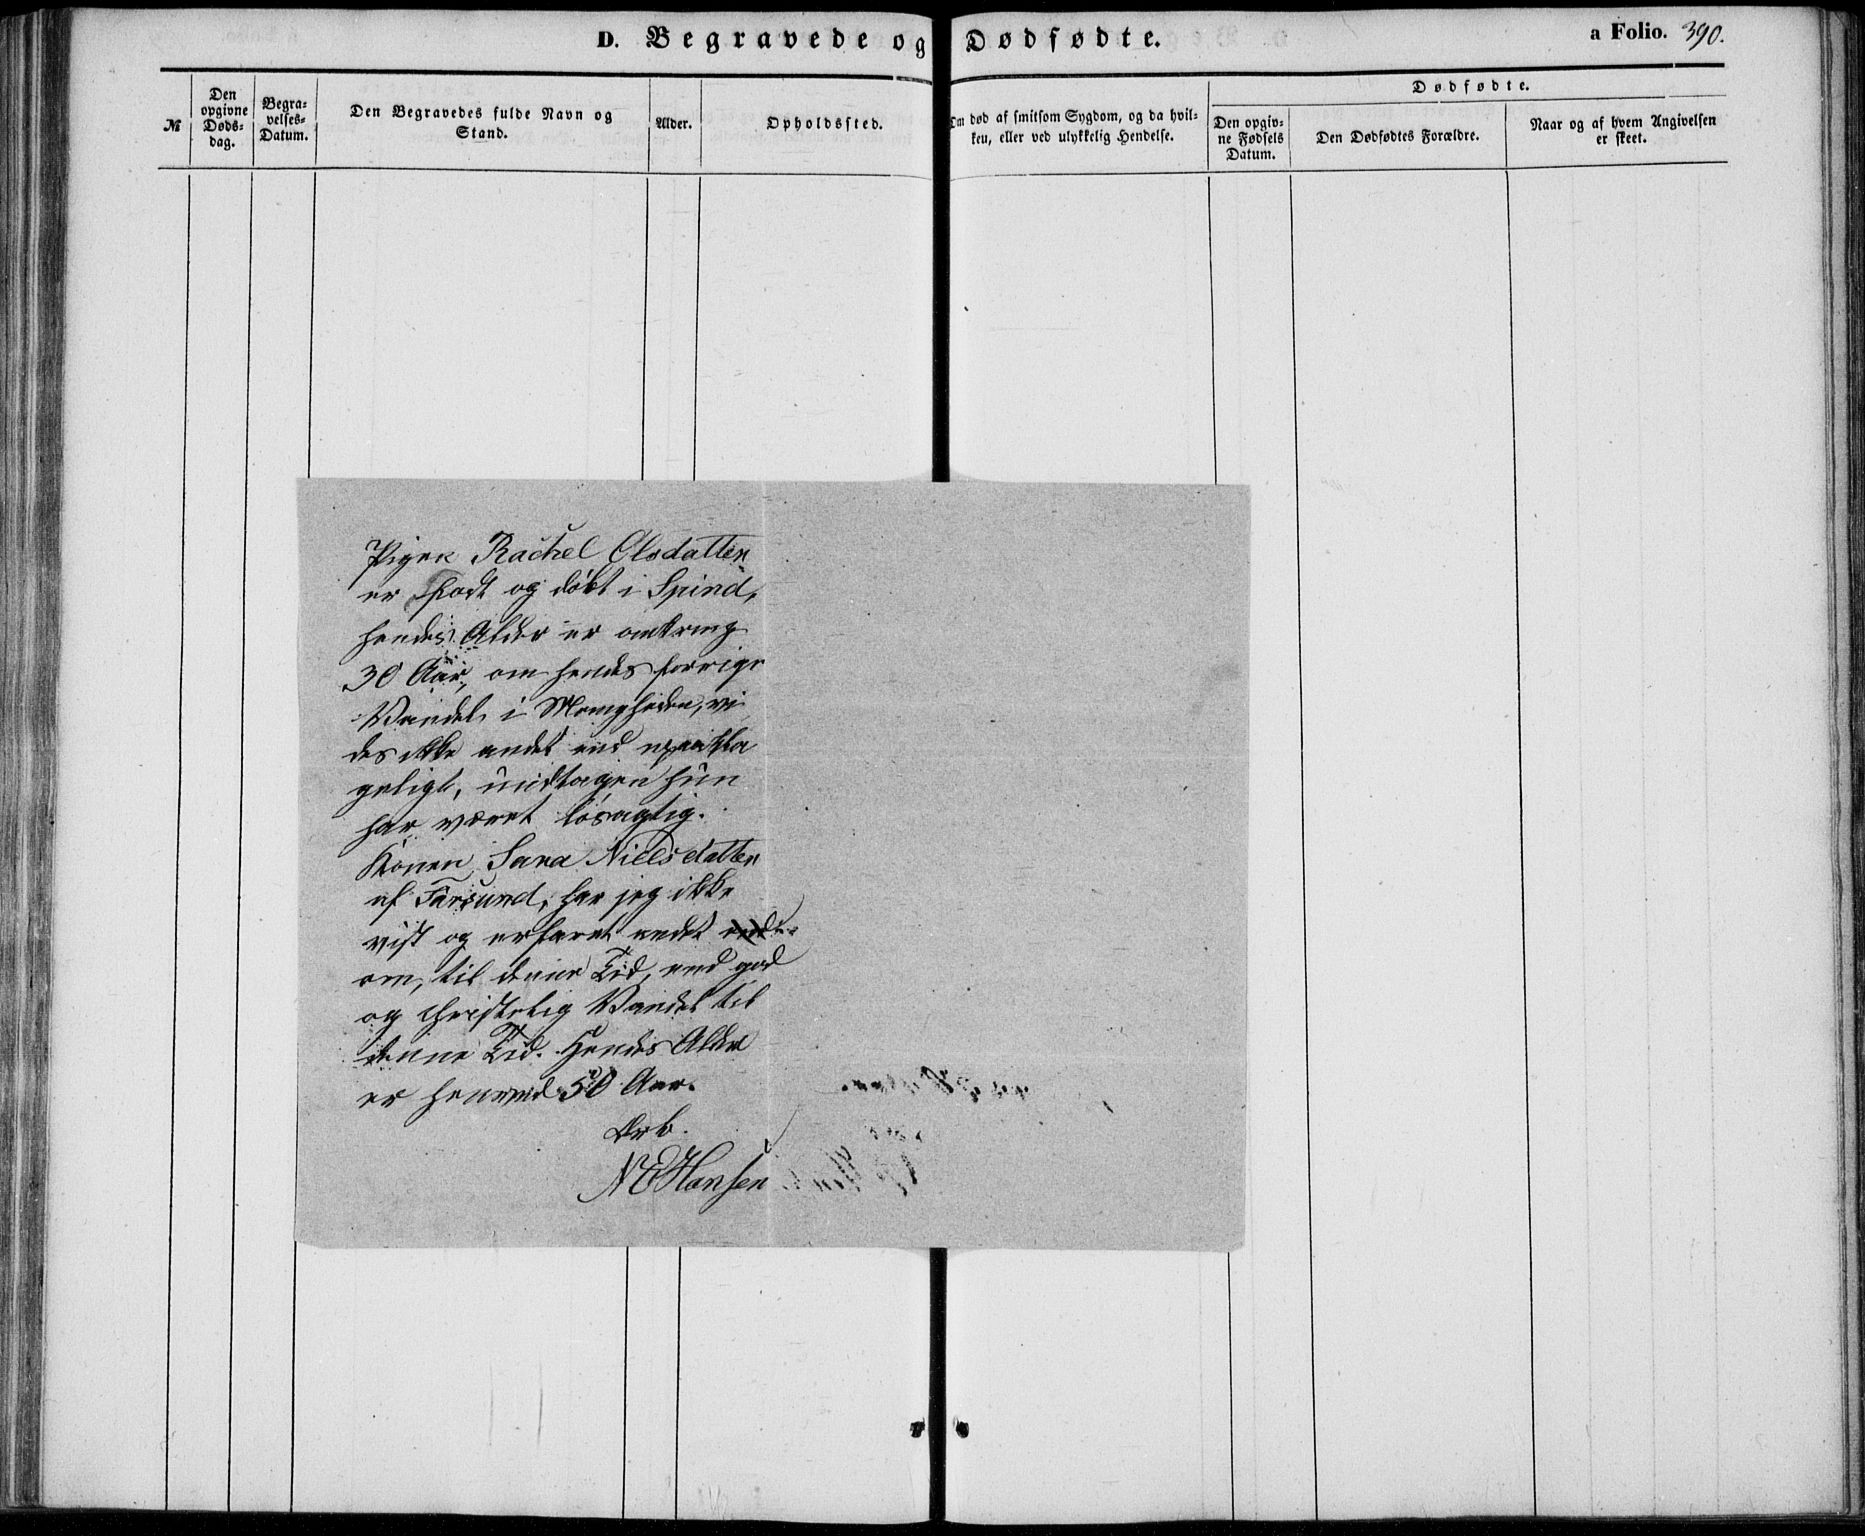 D. Begravede og Dødfødte.
a Folio. 390.
№
Den
opgivne
Døds-
dag.
Begra-
velses-
Datum.
Den Begravedes fulde Navn og
Stand.
Alder.
Opholdssted.
Om død af smitsom Sygdom, og da hvil-
ken, eller ved ulykkelig Hendelse.
Dødfødte.
Den opgiv-
ne Fødsels
Datum.
Den Dødfødtes Forældre.
Naar og af hvem Angivelsen
er skeet.
Pigen Rachel Olsdatter
er født og døbt i Spind,
hendes Alder er omkring
30 Aar, om hendes forrige
Vandel i Menigheden, vi
des ikke andet end
geligt, undtagen hun
har været løsagtig.
Konen Sara Nielsdatter
af Farsund, har jeg ikke
vist og erfaret andet
om, til denne Tid, end god
og christelig Vandel til
denne Tid. Hendes Alder
er henved 50 Aar.
Hansen